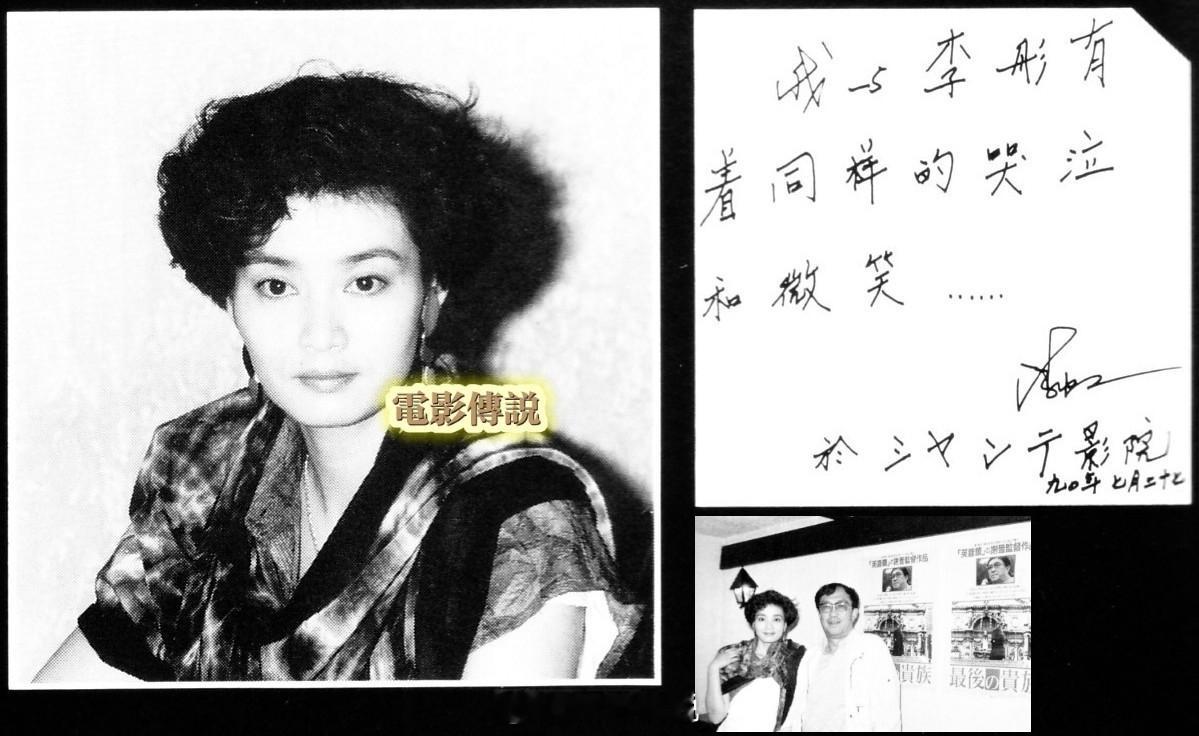 我与李彤有
着同样的哭泣
和微笑……
於シャンテ影院
九〇年七月二十七
電影傳説
「芙蓉鎮」の謝晋監督作品
貴族
「芙蓉鎮」の謝晋監督作品
最後の貴族